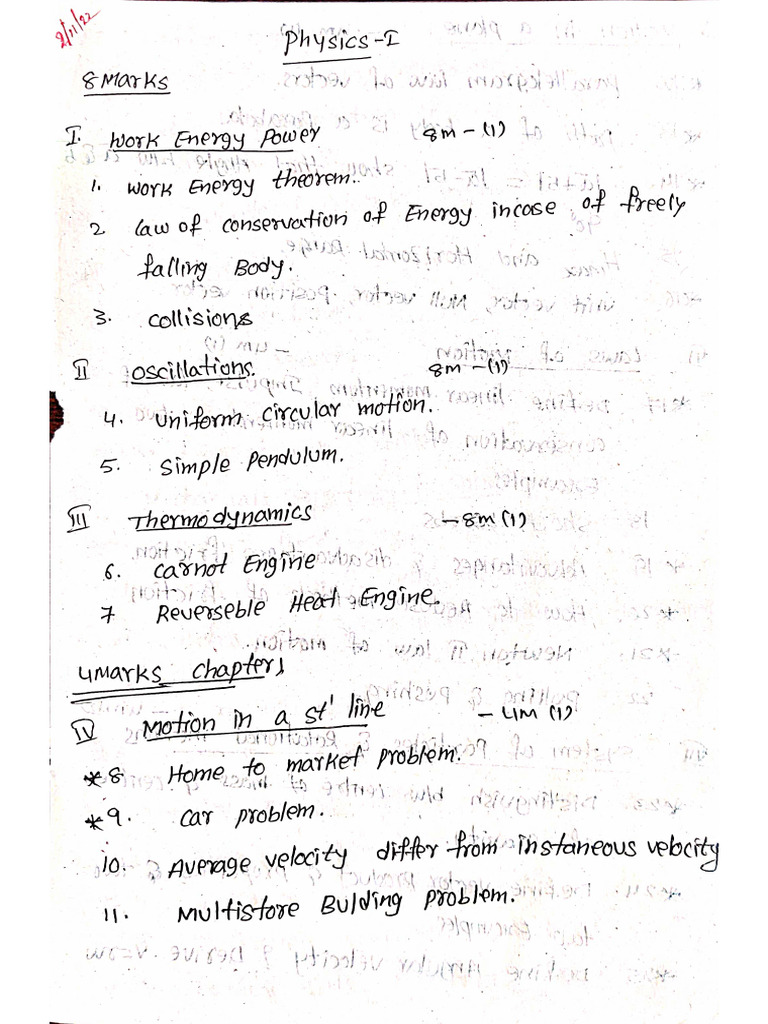 2/11/22
Physics-I
8 Marks
I. Work Energy Power 8m-(1)
1. Work Energy theorem.
2. Law of conservation of Energy incase of freely
falling Body.
3. Collisions
II Oscillations. 8m-(1)
4. Uniform circular motion.
5. Simple Pendulum.
III Thermodynamics -8m(1)
6. Carnot Engine
7 Reverseble Heat Engine.
4Marks Chapters
IV Motion in a st' line -4M(1)
*8. Home to market problem.
*9. Car problem.
10. Average velocity differ from instaneous velocity
11. Multistore Bulding problem.